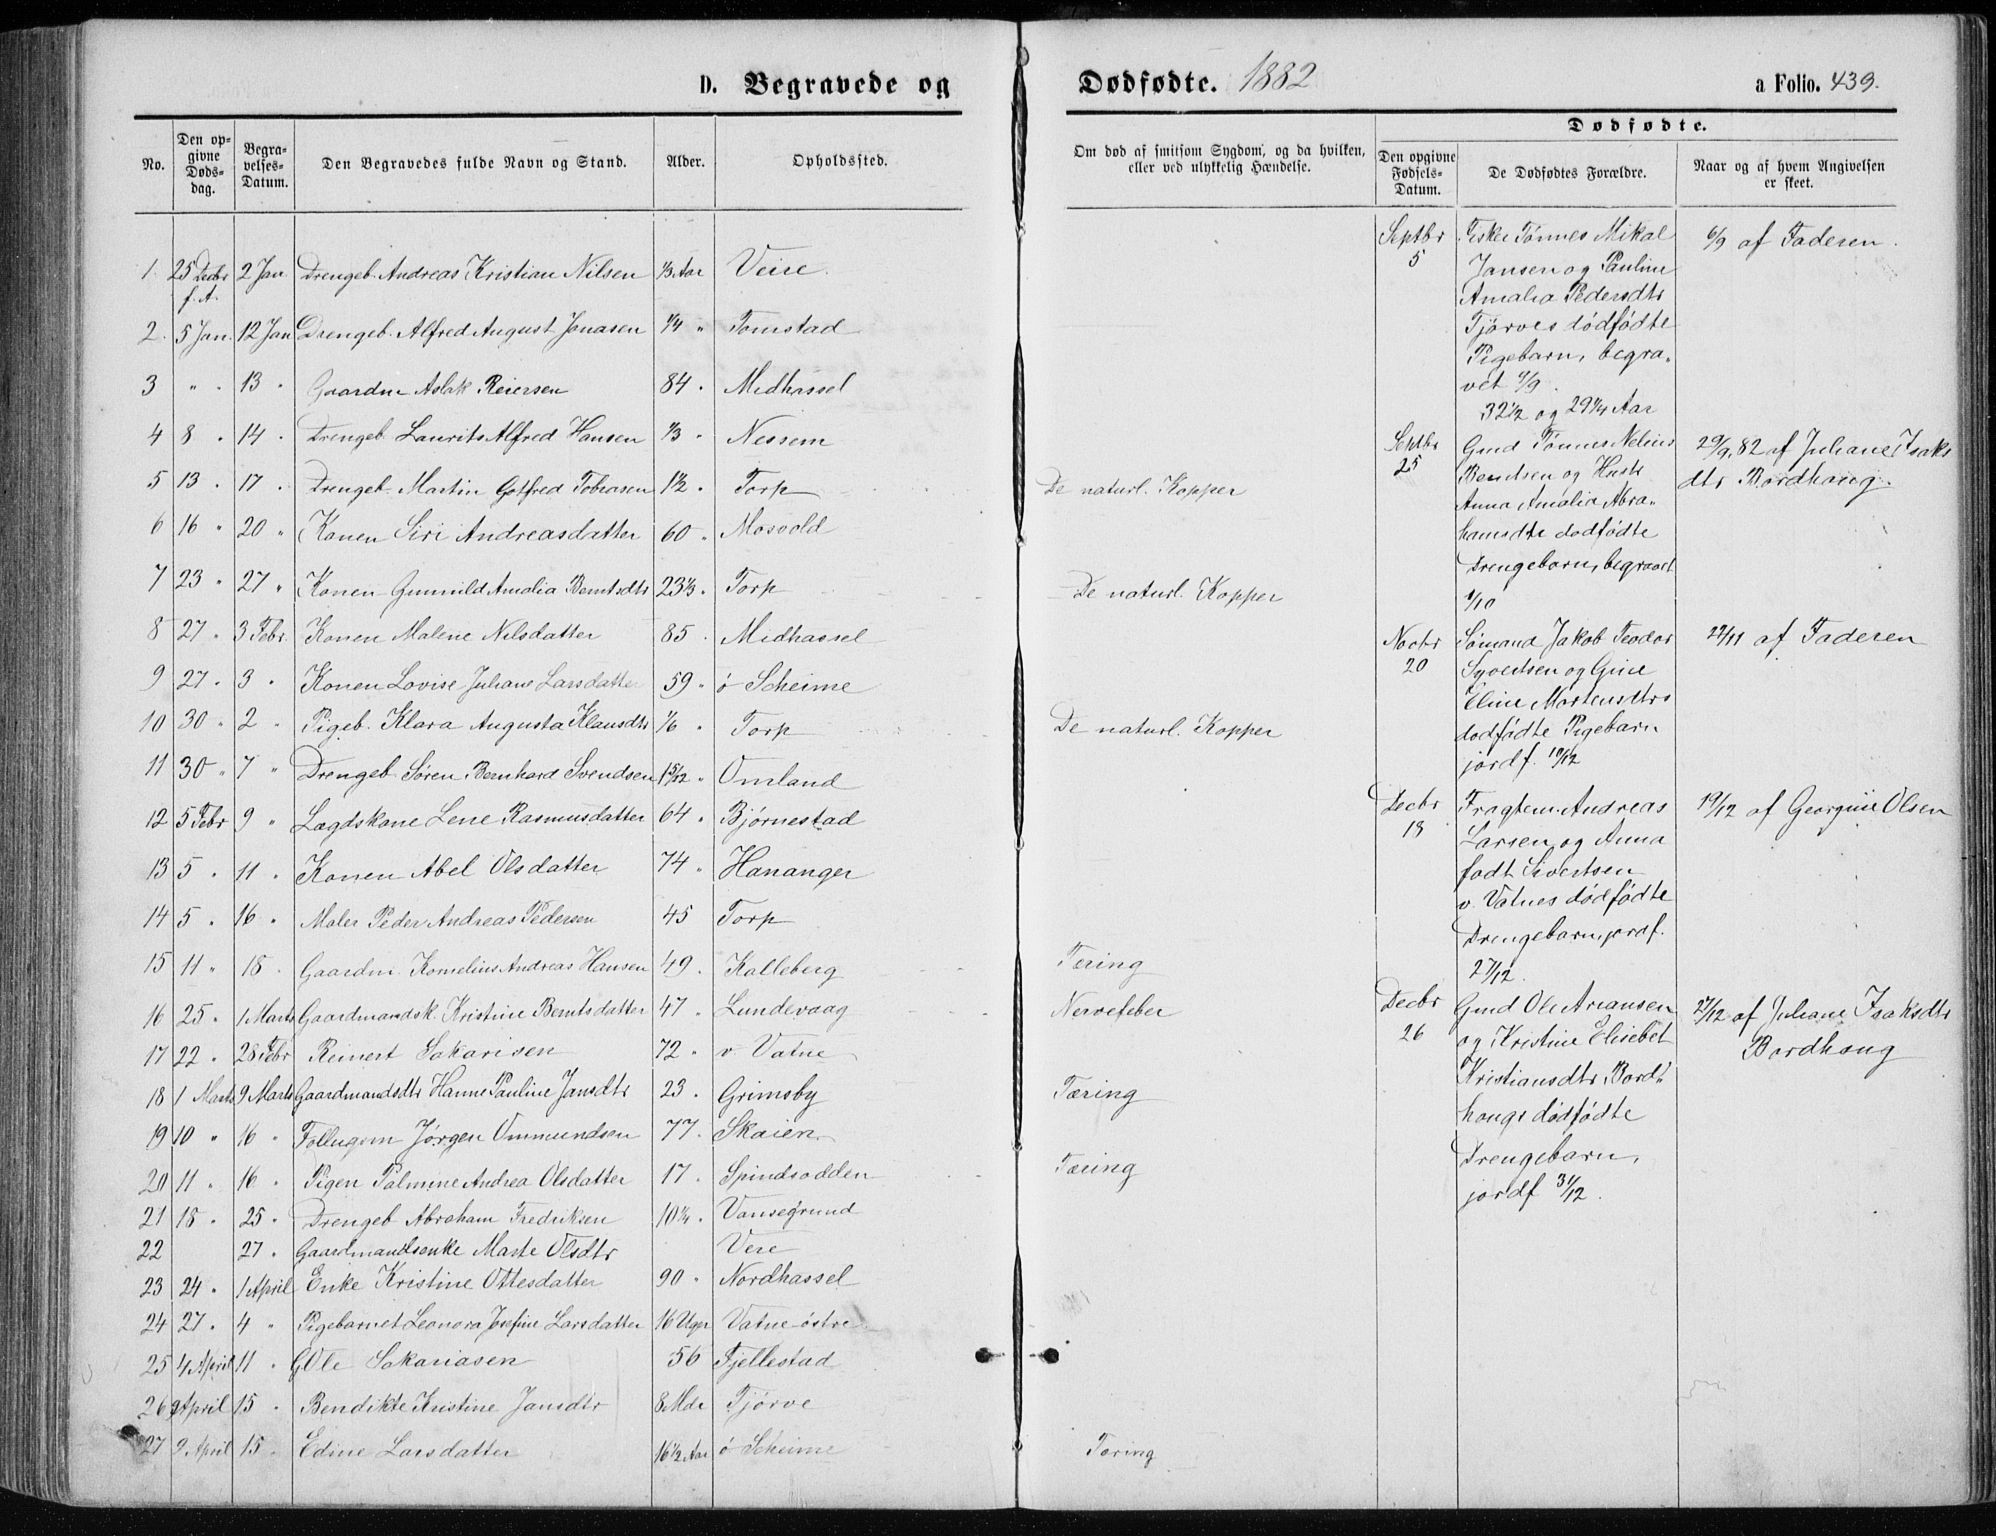 D. Begravede og
Dødfødte. 1882
a Folio. 439.
No.
Den op-
givne
Døds-
dag.
Begra-
velses-
Datum.
Den Begravedes fulde Navn og Stand.
Alder.
Opholdssted.
Om død af smitsom Sygdom, og da hvilken,
eller ved ulykkelig Hændelse.
Dødfødte.
Den opgivne
Fødsels-
Datum.
De Dødfødtes Forældre.
Naar og af hvem Angivelsen
er skeet.
1. 25 Decbr f. A. 2 Jan Drengeb. Andreas Kristian Nilsen 1/3 Aar Veire.
2. 5 Jan. 12 Jan Drengeb. Alfred August Jonasen 1/4 " Tomstad
3 " . 13 " Gaardm Aslak Reiersen 84 . Midhassel
4 8 . 14 . Drengeb. Laurits Alfred Hansen 1/3 " Nessem
5 13 . 17 . Drengeb. Martin Gotfred Tobiasen 1 1/2 . Torp De naturl. Kopper
6 16 " 20 " Konen Siri Andreasdatter 60 " Mosvold
7 23 " 27 " Konen Gunnild Amalia Berntsdtr 23 1/3 . Torp De naturl. Kopper
8 27 " 3 Febr. Konen Malene Nilsdatter 85 . Midhassel
9 27 . 3 " Konen Lovise Juliane Larsdatter 59 " ø Scheime
10 30 " 2 " Pigeb. Klara Augusta Klausdtr 1/6 " Torp De naturl. Kopper
11 30 " 7 " Drengeb Søren Bernhard Svendsen 1 5/12 " Omland
12 5 Febr 9 " Lægdskone Lene Rasmusdatter 64 . Bjørnestad
13 5 . 11 . Konen Abel Olsdatter 74 " Hananger
14 5 . 16 . Maler Peder Andreas Pedersen 45 Torp
15 11 " 18 . Gaardm. Kornelius Andreas Hansen 49 . Kalleberg Tæring
16 25 . 1 Marts Gaardmandsk. Kristine Berntsdatter 47 . Lundevaag Nervefeber
17 22 . 28 Febr Reinert Sakarisen 72 . v Vatne
18 1 Marts 9 Marts Gaardmandsdtr Hanne Pauline Jansdtr 23 . Grimsby Tæring
19 10 " 16 " Jørgen Ommundsen 77. Skaien
20 11 " 16 . Pigen Palmine Andrea Olsdatter 17 . Spindsodden Tæring
21 18 . 25 . Drengeb Abraham Fredriksen 10 1/4 . Vansegrund
22 27 . Gaardmandsenke Marte Olsdtr Vere
23 24 " 1 April Enke Kristine Ottesdatter 90 " Nordhassel
24 27 . 4 " Pigebarnet Leonora Josefine Larsdatter 16 Uger Vatne østre
25 4 April 11 . G Ole Sakariasen 56 Fjellestad
26 9 April 15 . Bendikte Kristine Jansdtr 8 Mdr Tjørve
27 9 April 15 . Edine Larsdatter 16 1/2 Aar ø Scheime Tæring
Septbr
5
Fisker Tønnes Mikal
Jansen og Pauline
Amalia Pedersdtr
Tjørves dødfødte
Pigebarn, begra-
vet 9/9.
32 1/2 og 29 1/4 Aar
6/9 af Faderen.
Septbr
25
Gmd Tønnes Nelius
Bentsen og Hustr
Anna Amalia Abra-
hamsdtr dødfødte
Drengebarn, begravet
1/10
29/9 82 af Juliane Isaks
dtr Bordhaug.
Novbr
20
Sømand Jakob Teodor
Syvertsen og Gine
Eline Mortensdtrs
dødfødte Pigebarn
jordf. 10/12
22/11 af Faderen
Decbr
18
Fragtem. Andreas
Larsen og Anna
født Sivertsen
v. Vatnes dødfødte
Drengebarn, jordf.
27/12.
19/12 af Georgine Olsen
Decbr
26
Gmd Ole Ariansen
og Kristine Elisebet
Kristiansdtr Bord-
haugs dødfødte
Drengebarn,
jordf 31/12.
27/12 af Juliane Isaksdtr
Bordhaug